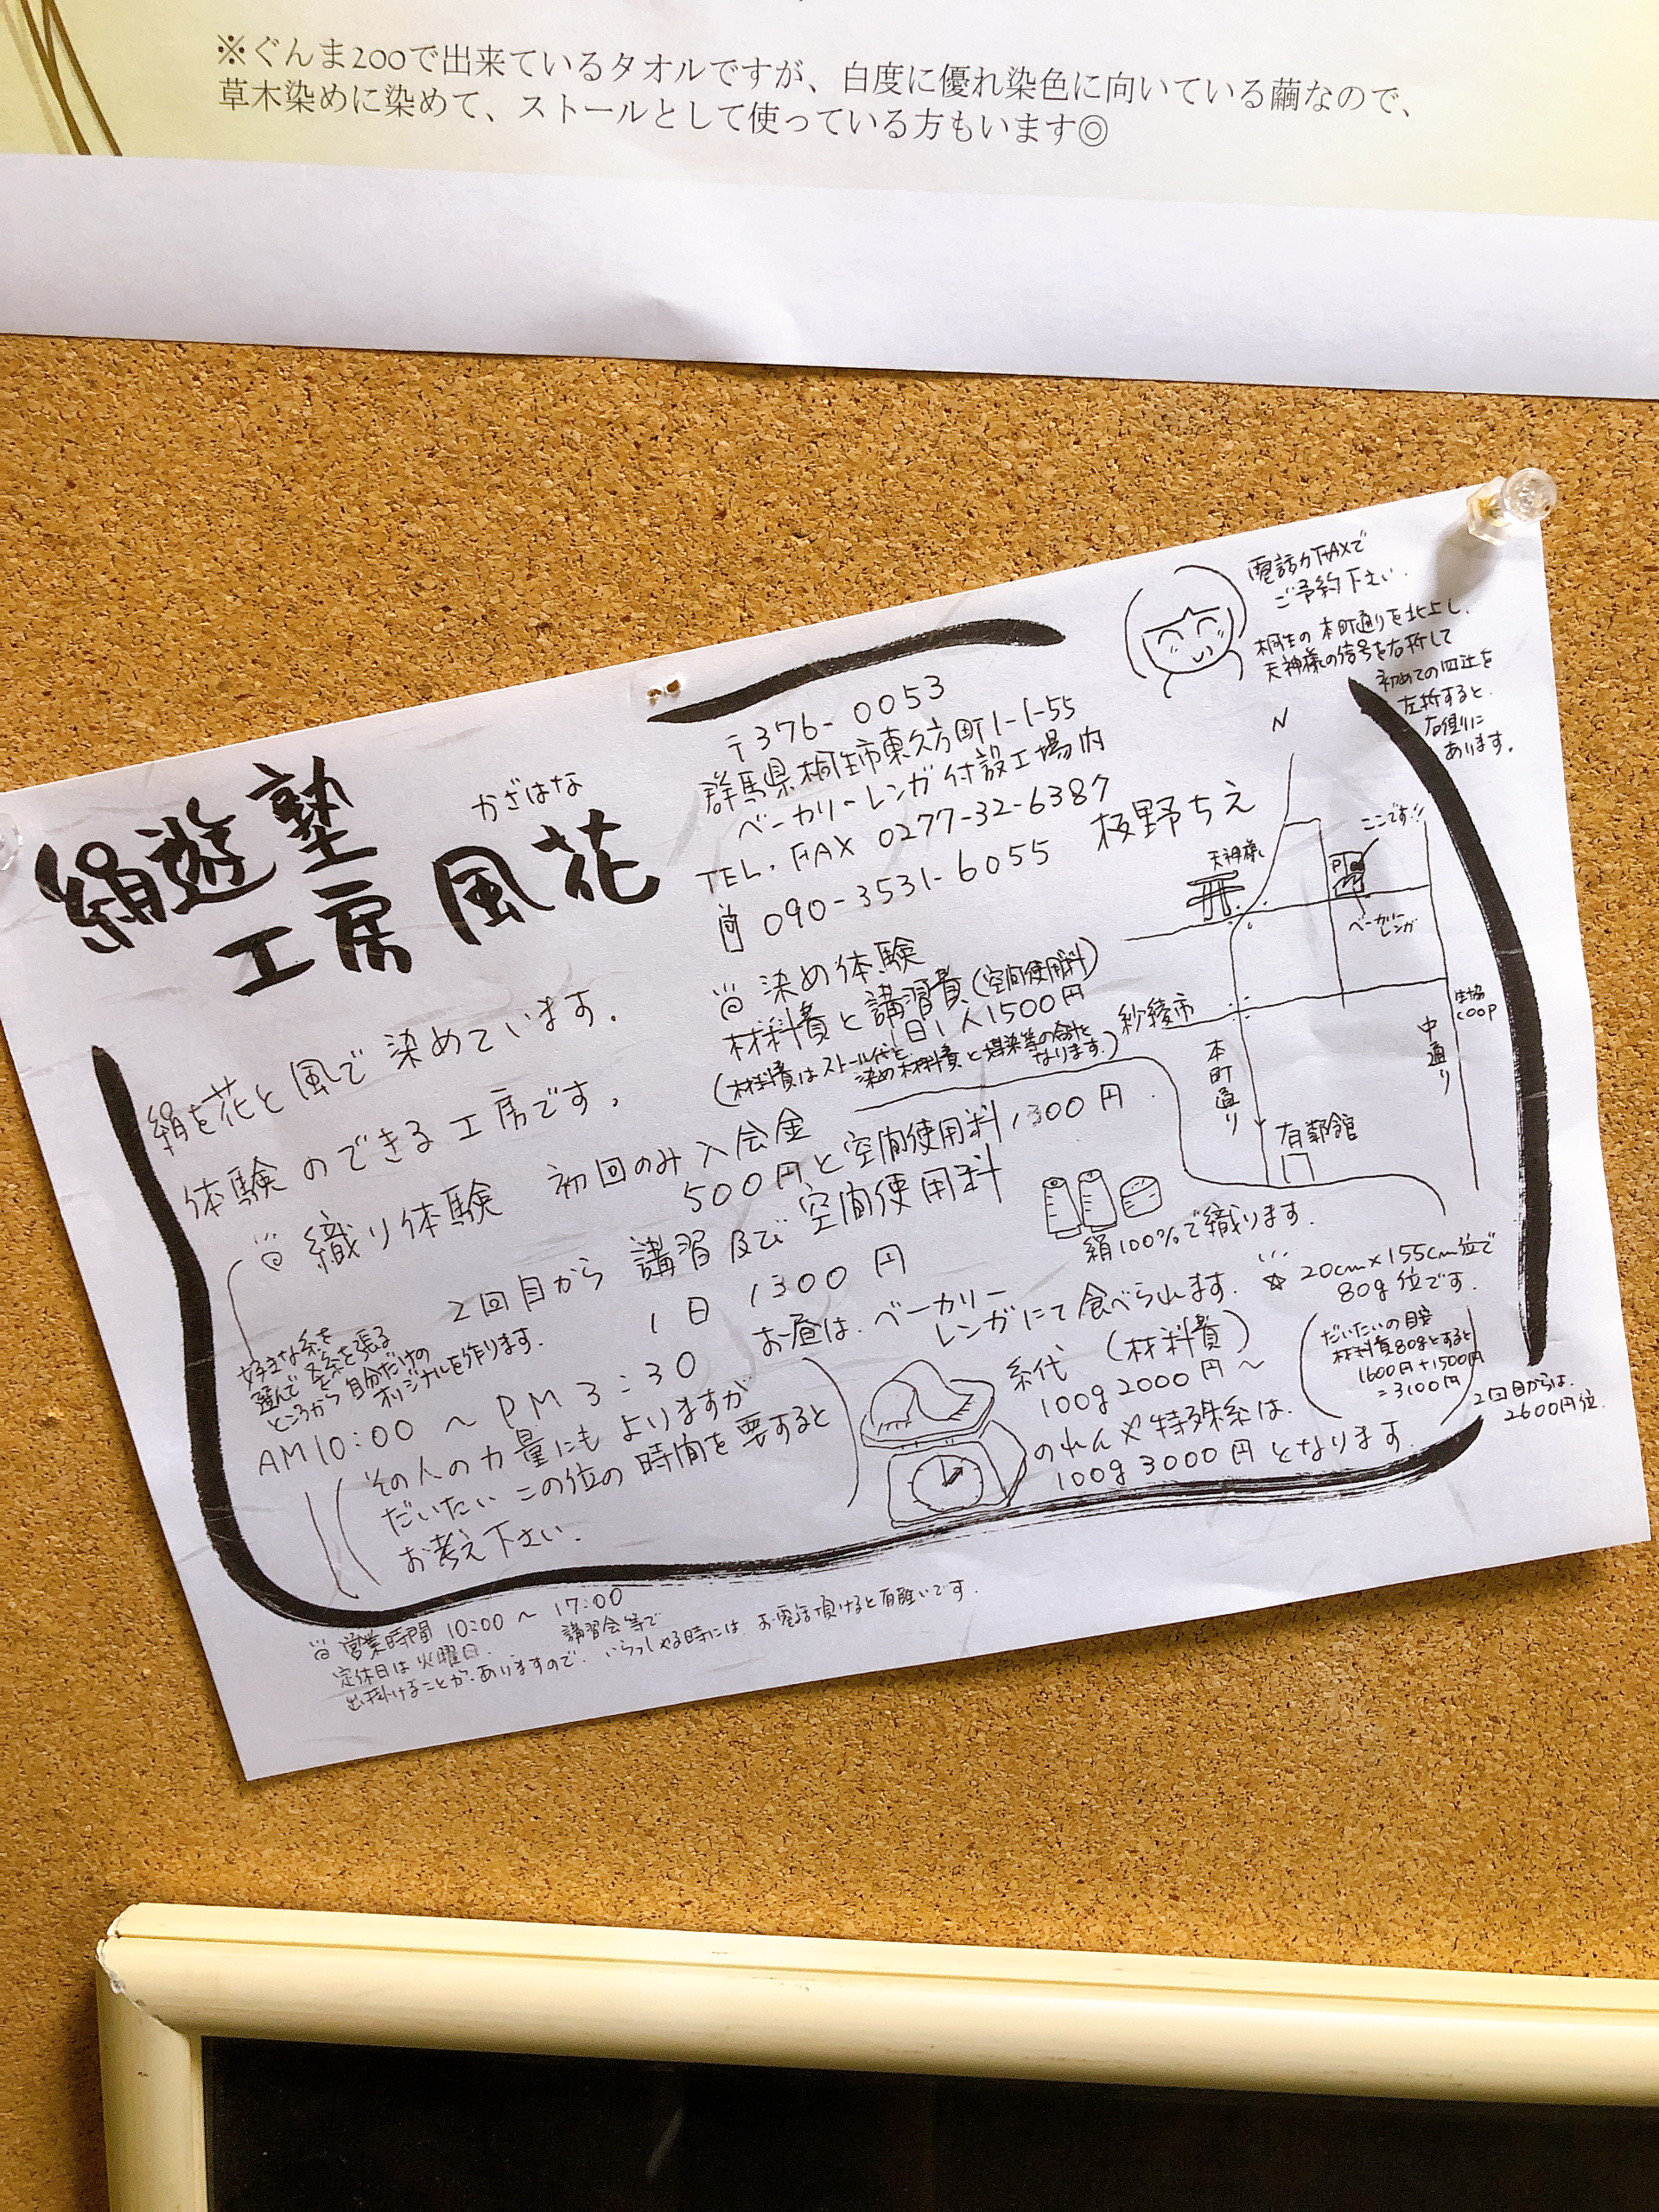 ※ぐんま200で出来ているタオルですが、白度に優れ染色に向いている繭なので、
草木染めに染めて、ストールとして使っている方もいます◎
電話かFAXで
ご予約下さい.
桐生の本町通りを北上し.
天神様の信号を右折して
初めての四辻を
左折すると.
右側に
あります.
絹遊塾
かざはな
工房 風花
〒376-0053
群馬県桐生市東久方町1-1-55
ベーカリーレンガ付設工場内
TEL.FAX 0277-32-6387
090-3531-6055 板野ちえ
絹を花と風で染めています.
体験のできる工房です.
染め体験
材料費と講習費(空間使用料)
1日1人1500円
(材料費はストール代と
染め材料費と媒染等の合計と
なります.)
N
ここです!!
天神様
P
ベーカリー
レンガ
紗綾市
生協
COOP
本町通り
中通り
有鄰館
織り体験 初回のみ入会金
500円と空間使用料1300円.
2回目から 講習及び空間使用料
1日 1300円
好きな糸を
選んで 経糸を張る
ところから自分だけの
オリジナルを作ります.
お昼は.ベーカリー
レンガにて食べられます.
AM10:00 ~ PM3:30
その人の力量にもよりますが
だいたいこの位の時間を要すると
お考え下さい.
絹100%で織ります.
☆20cm×155cm位で
80g位です.
糸代 (材料費)
100g2000円~
のれんや特殊糸は.
100g3000円となります.
だいたいの目安
材料費80gとすると
1600円+1500円
=3100円
2回目からは.
2600円位.
営業時間 10:00 ~ 17:00
定休日は火曜日. 講習会等で
出掛けることがありますので.いらっしゃる時には.お電話頂けると有難いです.